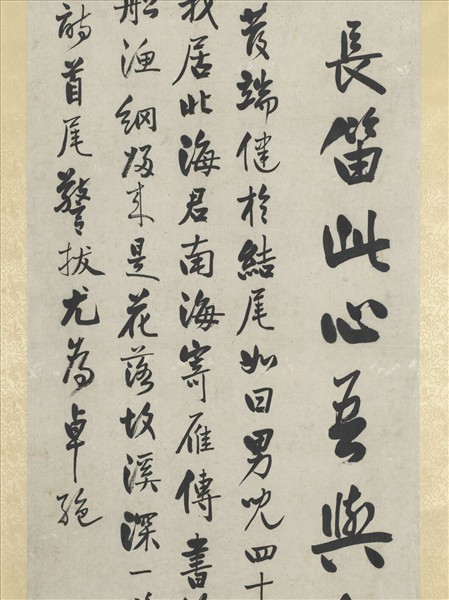 長笛此心吾與
發端健於結尾如曰男兒四十
我居北海君南海寄雁傳書
船漁網歸來是花落故溪深一
詩首尾警拔尤為卓絕